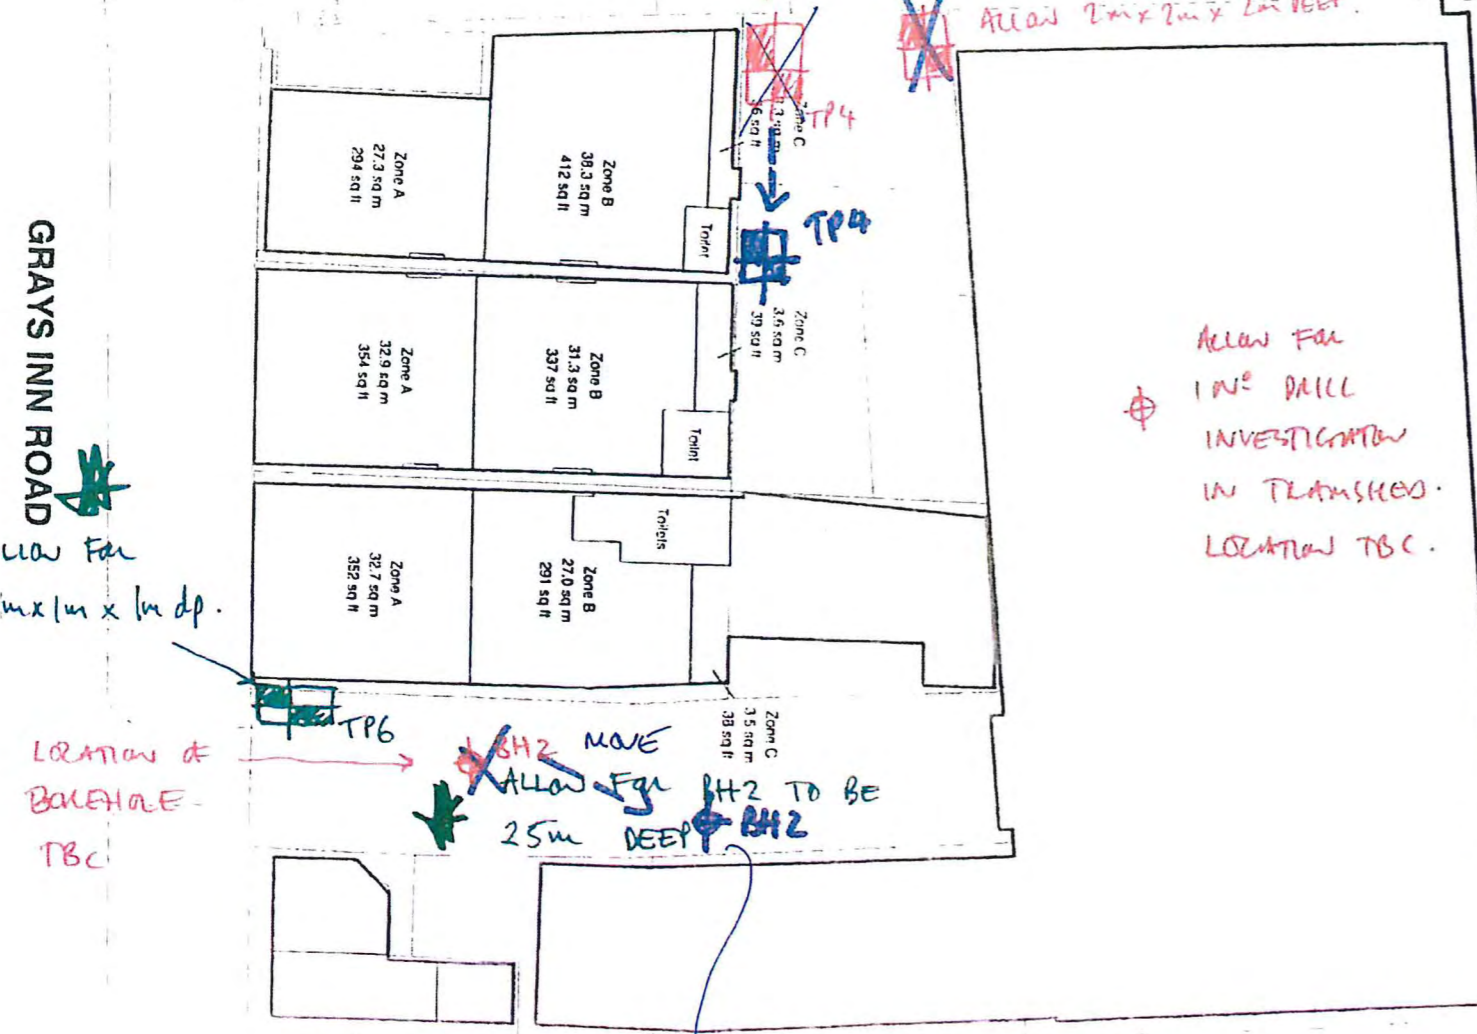 ALLOW 2m x 2m x 2m DEEP.
TP4
Zone C
sq ft
TP4
Zone A
27.3 sq m
294 sq ft
Zone B
38.3 sq m
412 sq ft
Toilet
Zone C
3.6 sq m
39 sq ft
Zone A
32.9 sq m
354 sq ft
Zone B
31.3 sq m
337 sq ft
Toilet
Zone A
32.7 sq m
352 sq ft
Zone B
27.0 sq m
291 sq ft
Toilets
Zone C
3.5 sq m
38 sq ft
GRAYS INN ROAD
ALLOW FOR
1 Nº DRILL
INVESTIGATION
IN TRAMSHED.
LOCATION TBC.
LLOW FOR
m x 1m x 1m dp.
TP6
LOCATION OF
BOREHOLE
TBC
BH2 MOVE
ALLOW FOR BH2 TO BE
25m DEEP
BH2